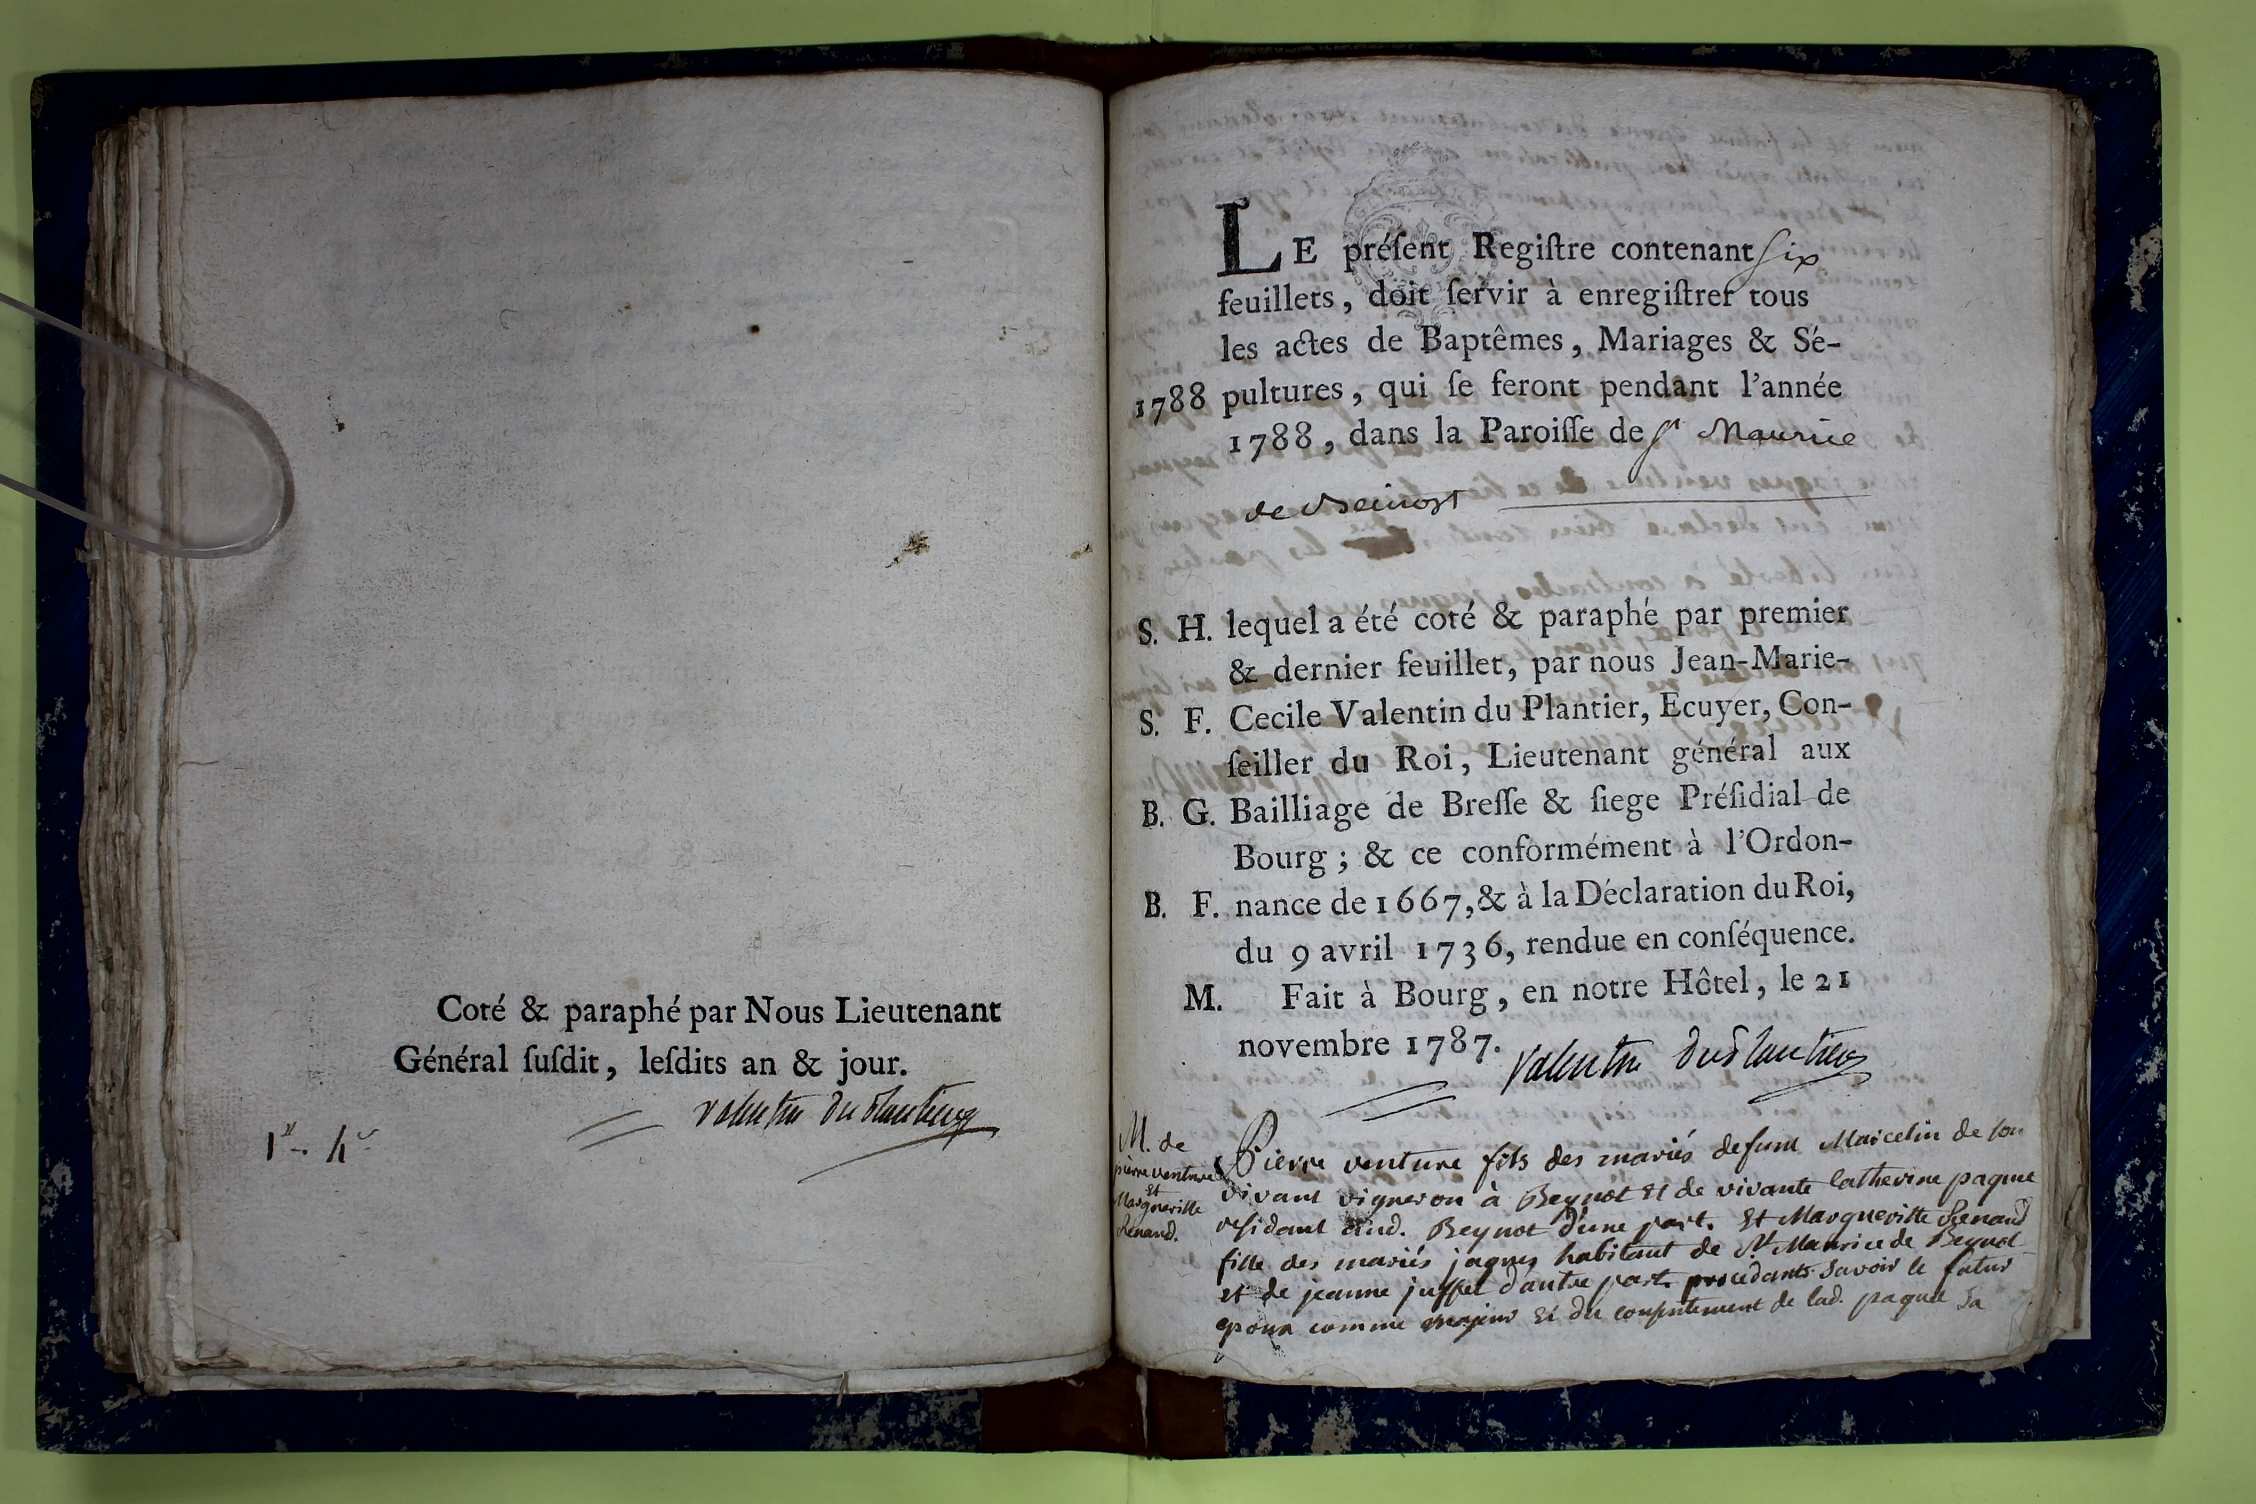 Coté & paraphé par Nous Lieutenant
Général ſuſdit, leſdits an & jour.
Valentin du Plantier
LE préſent Regiſtre contenant six
feuillets, doit ſervir à enregiſtrer tous
les actes de Baptêmes, Mariages & Sé-
1788 pultures, qui ſe feront pendant l'année
1788, dans la Paroiſſe de St Maurice
de Beinost
S. H. lequel a été coté & paraphé par premier
& dernier feuillet, par nous Jean-Marie-
S. F. Cecile Valentin du Plantier, Ecuyer, Con-
ſeiller du Roi, Lieutenant général aux
B. G. Bailliage de Breſſe & ſiege Préſidial de
Bourg ; & ce conformément à l'Ordon-
B. F. nance de 1667, & à la Déclaration du Roi,
du 9 avril 1736, rendue en conſéquence.
M. Fait à Bourg, en notre Hôtel, le 21
novembre 1787.
Valentin du Plantier
M. de
pierre venture
et
Margueritte
Renand.
Pierre venture fils des mariés defunt Marcelin de son
vivant vigneron à Beynost et de vivante Catherine paque
residant aud. Beynot d'une part. Et Margueritte Renand
fille des mariés jaques habitant de St Maurice de Beynot
et de jeanne juffet d'autre part. procedants savoir le futur
epoux comme majeur et du consentement de lad. paque sa